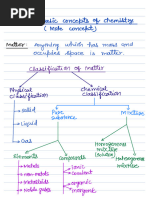 Some basic concepts of chemistry
( Mole concept )
Matter : Anything which has mass and
occupies space is matter.
Classification of matter
Physical classification
chemical classification
Solid
Liquid
Gas
Pure substance
Mixture
Elements
Compounds
Homogeneous mixture
Heterogeneous mixture
Metals
Non-metals
Metalloids
Noble gases
ionic
covalent
organic
inorganic